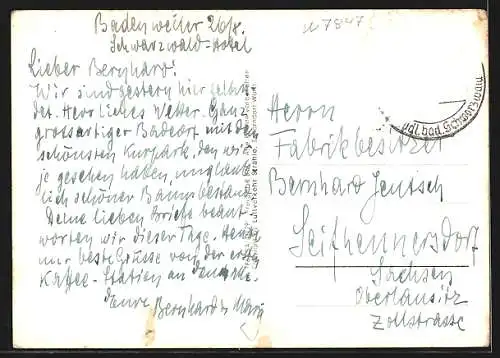 Badenweiler 26/8.
Schwarzwald-Hotel
Lieber Bernhard!
Wir sind gestern hier gelandet
det. Herrliches Wetter. Ganz
grossartiger Badeort mit dem
schönsten Kurpark, den wir
je gesehen haben, unglaub
lich schöner Baumbestand
Deine lieben Briefe beant
worten wir dieser Tage. Heute
nur beste Grüsse von der ersten
Kaffee-Station an
Deine Bernhard u. Mary
u 7847
südl. bad. Schwarzwald
Herrn
Fabrikbesitzer
Bernhard Jentsch
Seifhennersdorf
Sachsen
Oberlausitz
Zollstrasse